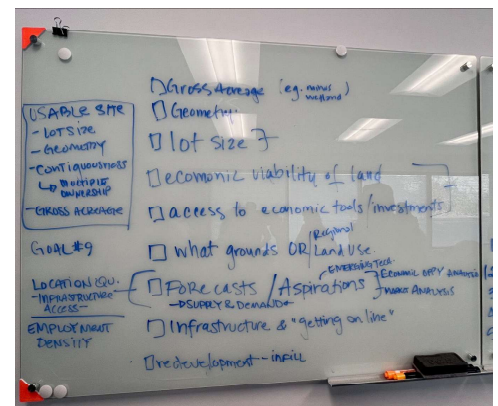 USABLE SITE
- LOT SIZE
- GEOMETRY
- CONTIGUOUSNESS
↳ MULTIPLE OWNERSHIP
- GROSS ACREAGE
GOAL #9
LOCATION QU.
- INFRASTRUCTURE ACCESS -
EMPLOYMENT DENSITY
Gross Acreage (eg. minus wetland)
Geometry
lot size
economic viability of land
access to economic tools/investments
what grounds OR/Land Use.
Regional
Forecasts / Aspirations
EMERGING TECH.
ECONOMIC OPPY
MARKET ANALYSIS
→ SUPPLY & DEMAND
Infrastructure & "getting on line"
redevelopment - INFILL